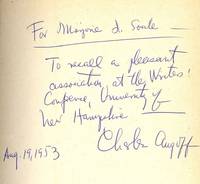 For Marjorie L. Soule —
To recall a pleasant
association at the Writers'
Conference, University of
New Hampshire
Charles Angoff
Aug. 19, 1953